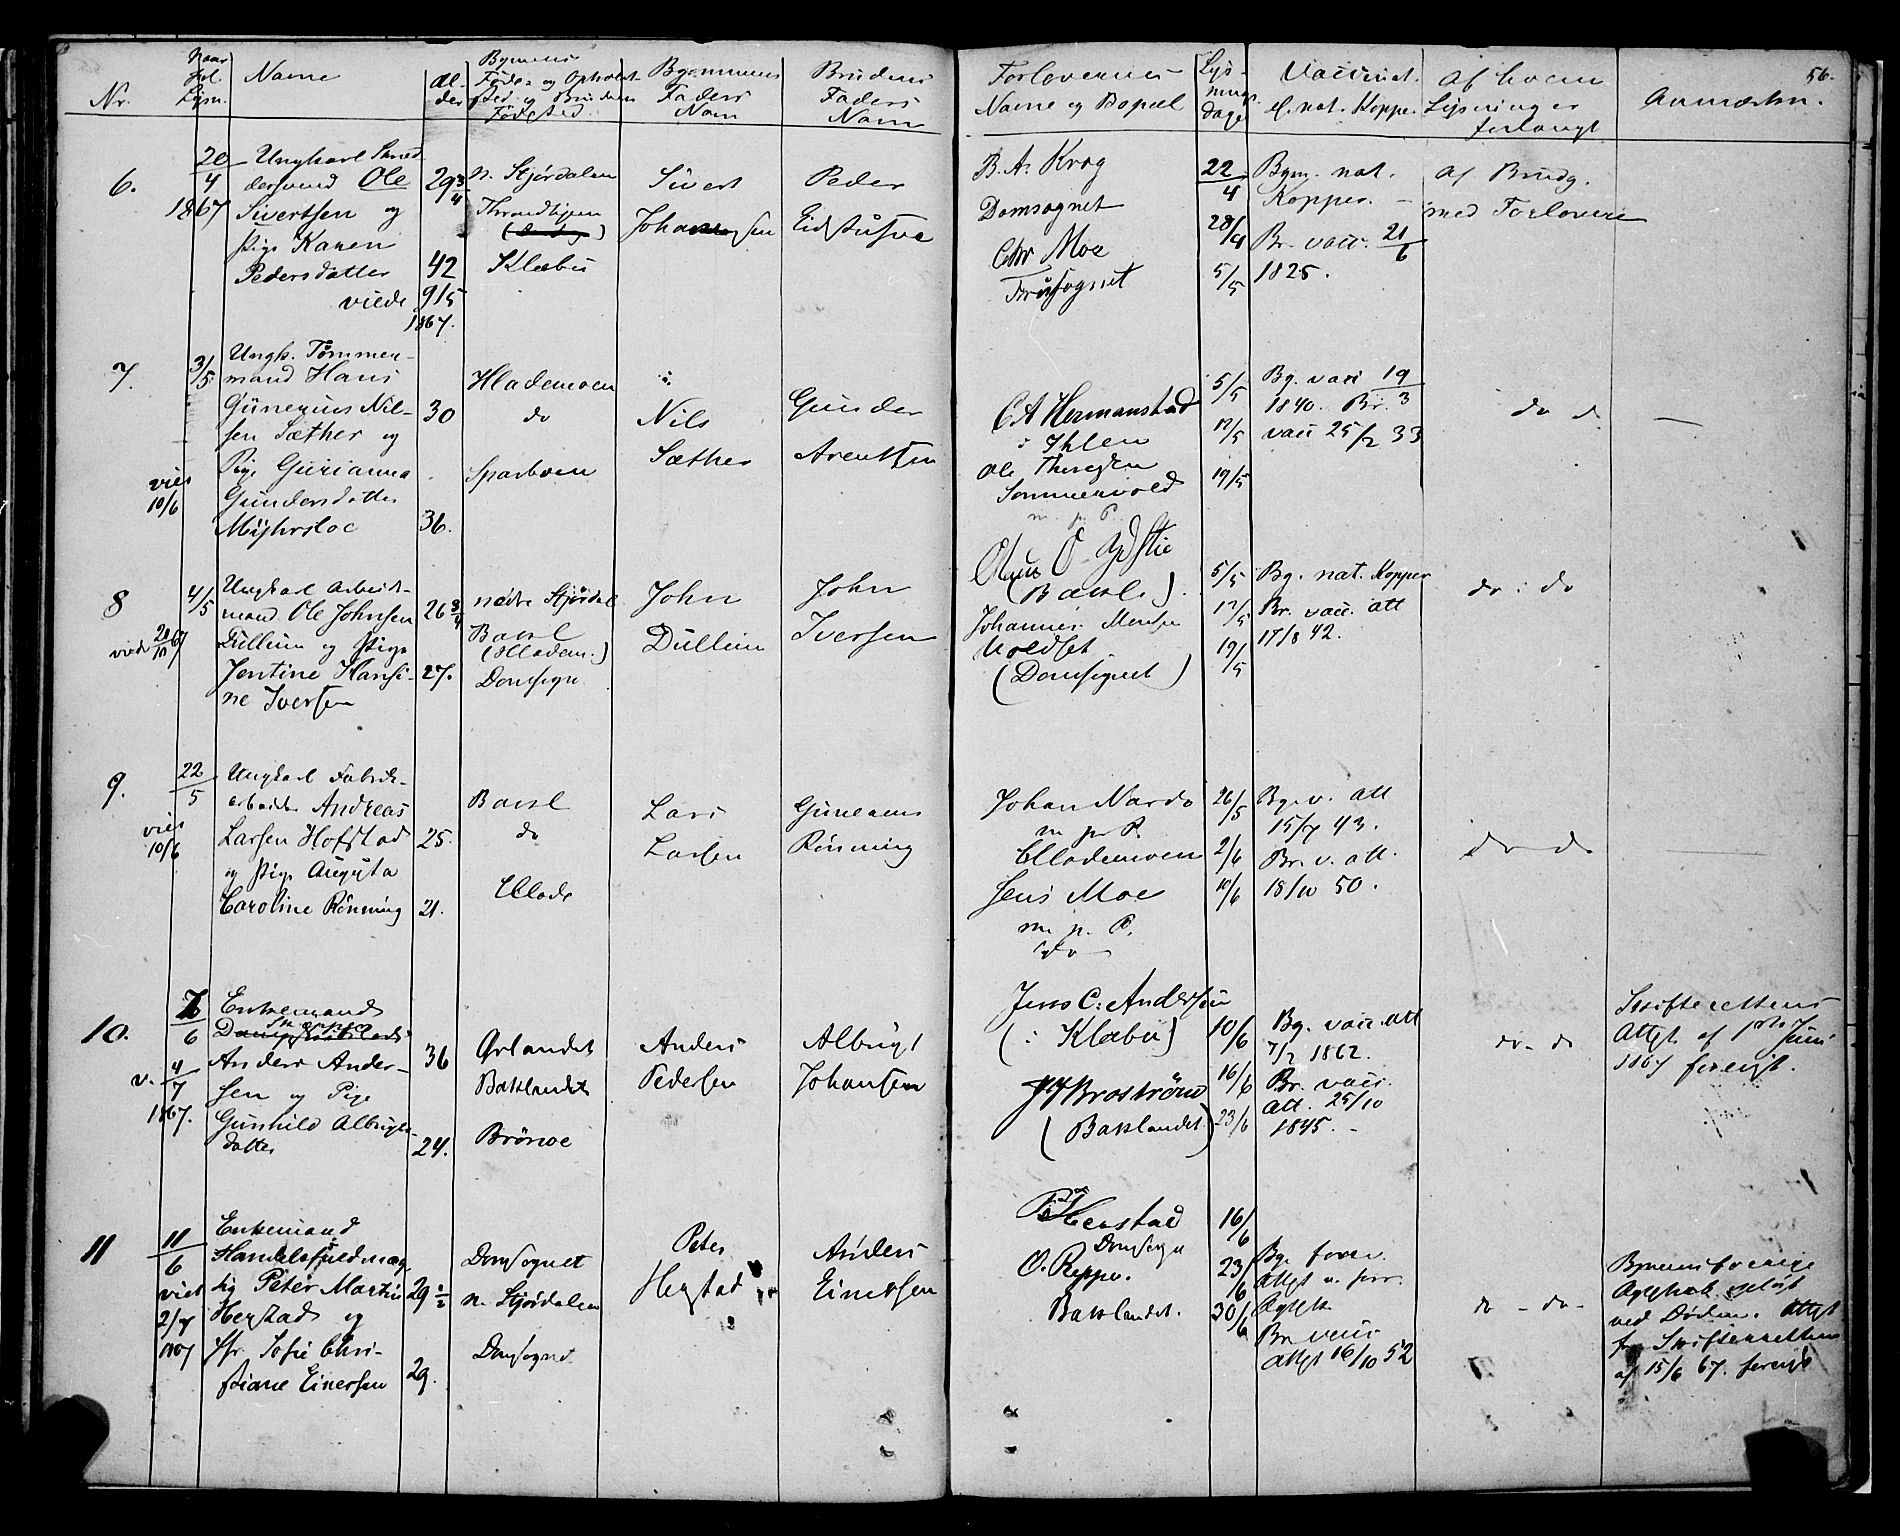 56.
Nr.
Naar
Lysn.
Navn
Al-
der
Føde- og Opholds-
sted og Brudens
Fødested.
Brudens
Faders
Navn
Faders
Navn
Forlovernes
Navne og Bopæl
Lys-
nings
dage
Vaccinat.
el. nat. Kopper
Af hvem
Lysning er
forlangt
Anmærkn.
6.
20
4
1867
Ungkarl Skred
dersvend Ole
Sivertsen og
Pige Karen
Pedersdatter
viede
29 3/4
42
9/5
1867.
n. Stjørdalen
Throndhjem
Klæbu
Sivert
Johannesen
Peder
B. A. Krog
Domsognet
Chr Moe
Fruesognet
22
4
28/4
5/5
Bgm. nat.
Kopper. -
Br. vacc. 21
6
1825.
Af Brudg.
med Forlovere
7.
3/5
viet
10/6
Ungk. Tømmer-
mand Hans
Gunerius Nil-
sen Sæther og
Pige Gurianna
Gundersdatter
30
36.
Hlademoen
do
Sparboen
Nils
Sæther
Gunder
Arentsen
C A Hermanstad
i Ihlen
Ole Thoresen
Sommervold
m. p. P.
5/5
12/5
19/5
Bg. vacc 19
3
1840. Br.
vacc 25/2 33
do d
—
8
4/5
Ungkarl Arbeids-
mand Ole Johnsen
Dullum og Pige
Jentine Hansi-
ne Iversen
26 3/4
27.
nedre Stjørdal
Bakl
(Hladem.)
Domsogn
John
Dullum
John
Iversen
(Bakl.)
Johannes
Moldset
(Domsognet)
5/5
12/5
19/5
Bg. nat. Kopper
Br. vacc. att
17/8 42.
do : do
9.
22
5
viet
10/6
Ungkarl Fabrik-
arbeider Andreas
Larsen Hofstad
og Pige Augusta
Caroline Rønning
25.
21.
Bakl
do
Hlade
Lars
Larsen
Guneriu
Rønning
Johan Nardo
m. p. P.
Hlademoen
Jens Moe
m. p. P.
do
26/5
2/6
10/6
Bg. v. att
15/7 43.
Br. v. att.
18/10 50.
do do
10.
7
6
v. 4
7
1867.
Enkemand
Anders Ander-
sen og Pige
Gunhild Albrigts
datter
36
24.
Ørlandet
Baklandet
Brønoe
Anders
Pedersen
Albrigt
Johansen
Jens C: Andersen
(: Klæbu)
Brostrøm
(Baklandet)
10/6
16/6
23/6
Bg. vacc. att
7/2 1862.
Br. vacc.
att. 25/10
1845. -
do - do
Skifterettens
Attest af Juni
1867 forevist.
11
11
6
viet
2/7
1867
Enkemand
Handelsfuldmæg
tig Peter Martin
Herstad og
Jfr. Sofie Chri-
stiane Einersen
29 1/2
29.
Domsognet
n. Stjørdalen
Domsognet
Peter
Herstad
Anders
Einersen
Herstad
Domsogn
O. Reppe.
Baklandet.
16/6
23/6
30/6
Bg. forev.
attest v. forr.
Ægtesk.
Br. vacc.
attest 16/10 52
do - do -
Brudgommens forrige
Ægteskab opløst
ved Døden. Attest
fra Skifteretten
af 15/6 67. forevist